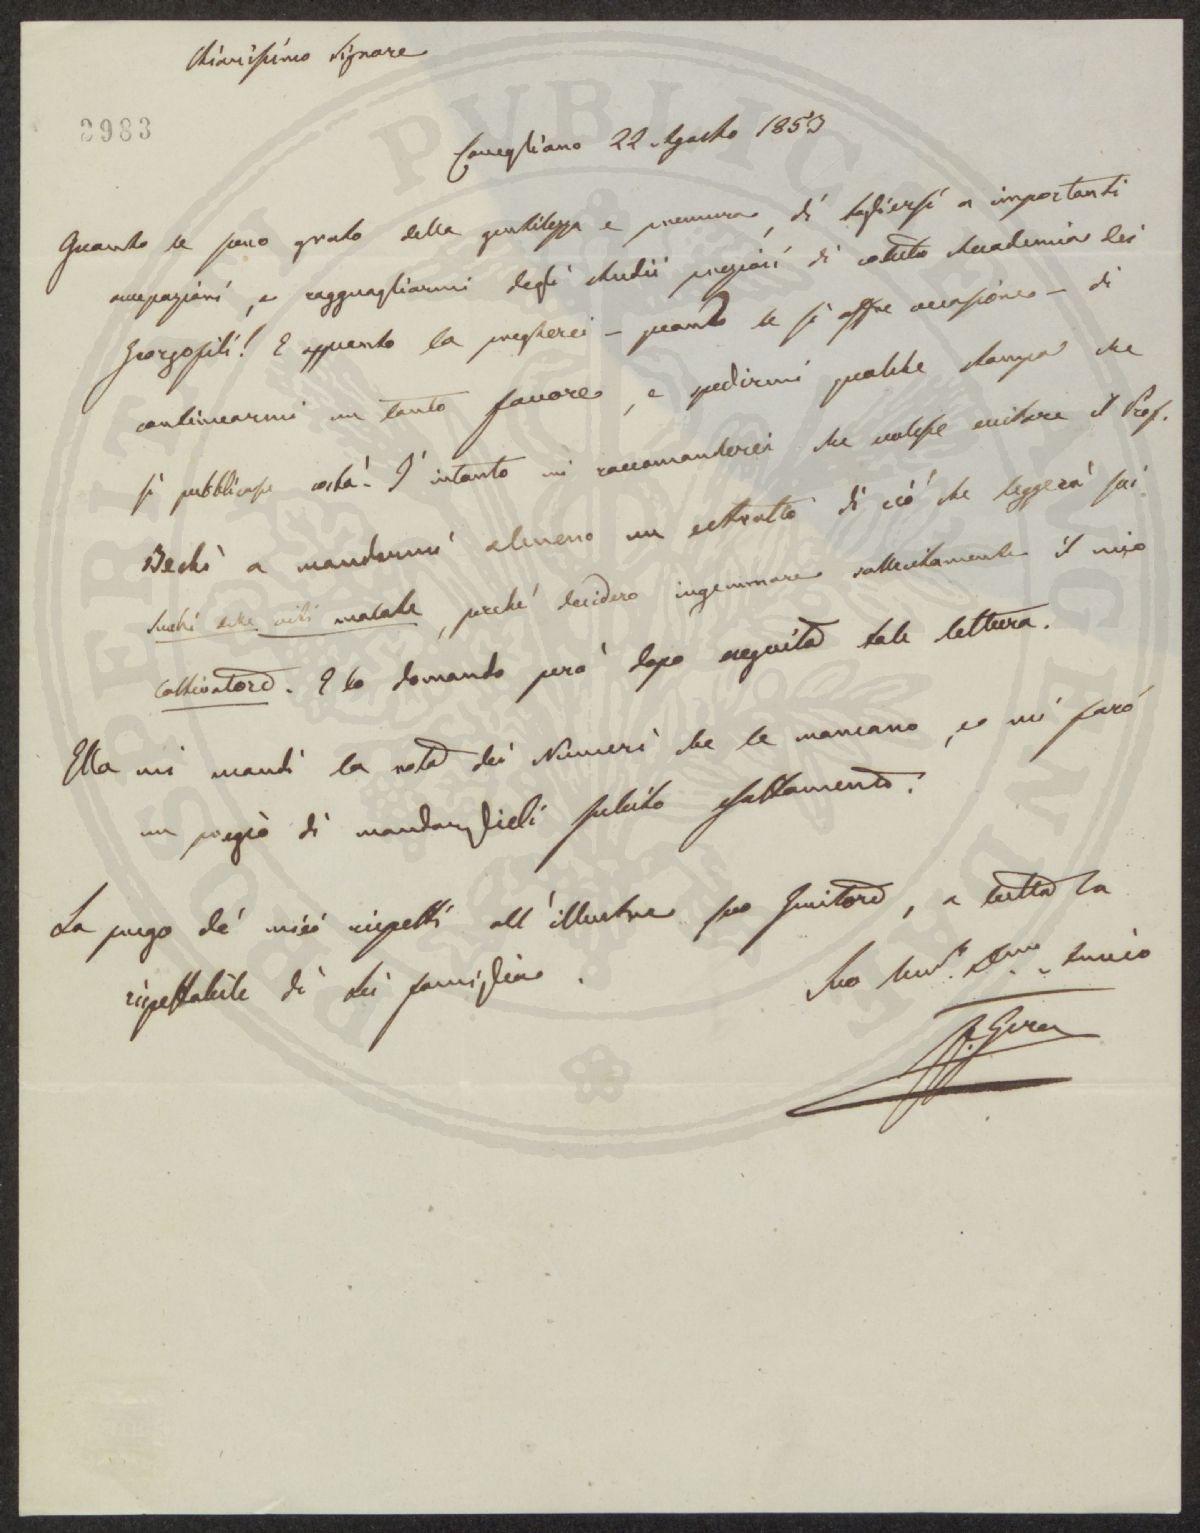 Chiarissimo Signore
2983
Conegliano 22 Agosto 1853
Quanto le sono grato della gentilezza e premura, di togliersi a importanti
occupazioni, e ragguagliarmi degli studii preziosi di codesta Accademia dei
Georgofili! E appunto la pregherei – quando le si offre occasione – di
continuarmi un tanto favore, e spedirmi qualche stampa che
si pubblicasse costà. I' intanto mi raccomanderei che volesse eccitare il Prof.
Bechi a mandarmi almeno un estratto di ciò che leggerà sui
succhi delle viti malate, perché desidero ingemmare sollecitamente il mio
Coltivatore. E lo domando però dopo seguita tale lettura.
Ella mi mandi la nota dei Numeri che le mancano, e mi farò
un pregio di mandarglieli subito esattamente.
La prego de' miei rispetti all'illustre suo Genitore, a tutta la
rispettabile di Lei famiglia.
Suo amico
F. Gera
PUBLICAE
PROSPERITATI